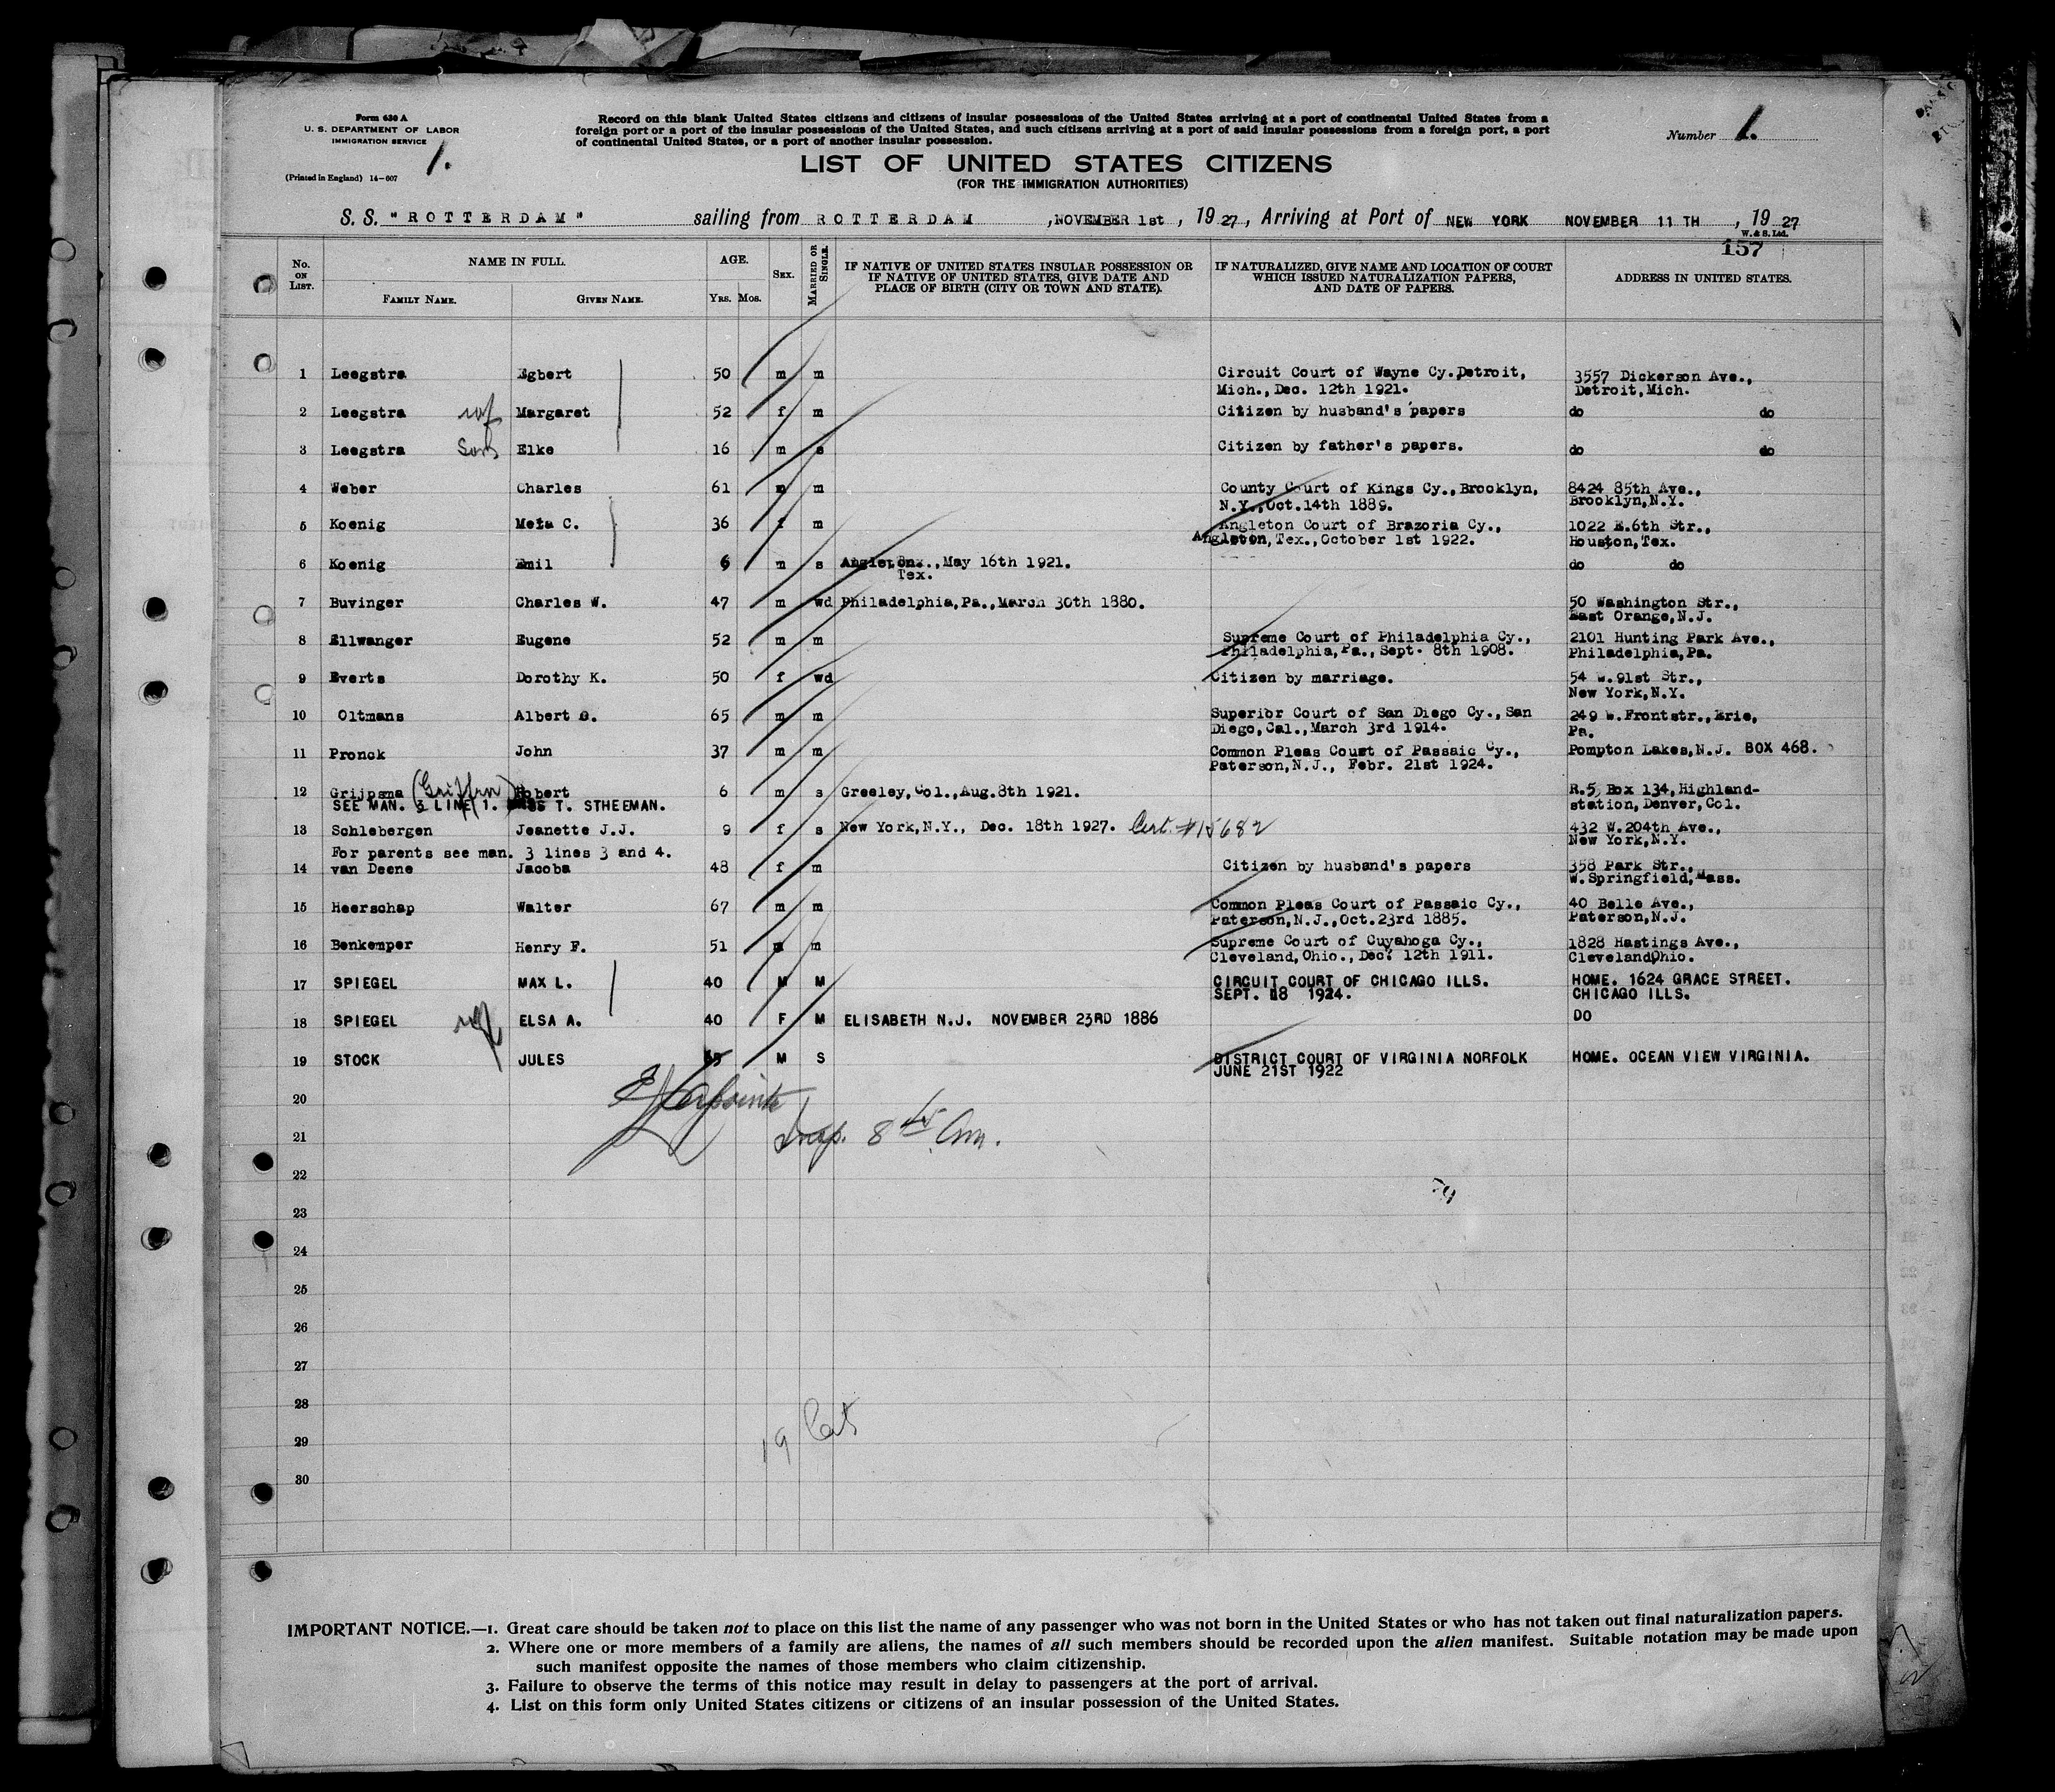 Form 630 A
U. S. DEPARTMENT OF LABOR
IMMIGRATION SERVICE
1.
(Printed in England) 14-607
Record on this blank United States citizens and citizens of insular possessions of the United States arriving at a port of continental United States from a
foreign port or a port of the insular possessions of the United States, and such citizens arriving at a port of said insular possessions from a foreign port, a port
of continental United States, or a port of another insular possession.
Number 1.
LIST OF UNITED STATES CITIZENS
(FOR THE IMMIGRATION AUTHORITIES)
S. S. "ROTTERDAM" sailing from ROTTERDAM, NOVEMBER 1st, 1927, Arriving at Port of NEW YORK NOVEMBER 11 TH, 1927
W. & S. Ltd.
157
No. ON LIST. NAME IN FULL. FAMILY NAME. GIVEN NAME. AGE. YRS. MOS. SEX. MARRIED OR SINGLE. IF NATIVE OF UNITED STATES INSULAR POSSESSION OR IF NATIVE OF UNITED STATES, GIVE DATE AND PLACE OF BIRTH (CITY OR TOWN AND STATE). IF NATURALIZED, GIVE NAME AND LOCATION OF COURT WHICH ISSUED NATURALIZATION PAPERS, AND DATE OF PAPERS. ADDRESS IN UNITED STATES.
1 Leegstra Egbert 50 m m Circuit Court of Wayne Cy. Detroit, 3557 Dickerson Ave.,
Mich., Dec. 12th 1921. Detroit, Mich.
2 Leegstra wf Margaret 52 f m Citizen by husband's papers do do
3 Leegstra Son Elke 16 m s Citizen by father's papers. do do
4 Weber Charles 61 m m County Court of Kings Cy., Brooklyn, 8424 85th Ave.,
N.Y., Oct.14th 1889. Brooklyn, N.Y.
5 Koenig Meta C. 36 f m Angleton Court of Brazoria Cy., 1022 E.6th Str.,
Angleton, Tex., October 1st 1922. Houston, Tex.
6 Koenig Emil 6 m s Angleton, May 16th 1921. do do
Tex.
7 Buvinger Charles W. 47 m wd Philadelphia, Pa., March 30th 1880. 50 Washington Str.,
East Orange, N.J.
8 Ellwanger Eugene 52 m m Supreme Court of Philadelphia Cy., 2101 Hunting Park Ave.,
Philadelphia, Pa., Sept. 8th 1908. Philadelphia, Pa.
9 Everts Dorothy K. 50 f wd Citizen by marriage. 54 W.91st Str.,
New York, N.Y.
10 Oltmans Albert 65 m m Superior Court of San Diego Cy., San 249 W.Frontstr., Erie,
Diego, Cal., March 3rd 1914. Pa.
11 Pronck John 37 m m Common Pleas Court of Passaic Cy., Pompton Lakes, N.J. BOX 468.
Paterson, N.J., Febr. 21st 1924.
12 Grijpsma (Griffen) Robert 6 m s Greeley, Col., Aug.8th 1921. R.5, Box 134, Highland-
SEE MAN. 3 LINE 1. MISS T. STHEEMAN. station, Denver, Col.
13 Schlebergen Jeanette J.J. 9 f s New York, N.Y., Dec. 18th 1927. Cert. #15682 432 W.204th Ave.,
For parents see man. 3 lines 3 and 4. New York, N.Y.
14 van Deene Jacoba 48 f m Citizen by husband's papers 358 Park Str.,
W.Springfield, Mass.
15 Heerschap Walter 67 m m Common Pleas Court of Passaic Cy., 40 Belle Ave.,
Paterson, N.J., Oct.23rd 1885. Paterson, N.J.
16 Benkemper Henry F. 51 m m Supreme Court of Cuyahoga Cy., 1828 Hastings Ave.,
Cleveland, Ohio., Dec. 12th 1911. Cleveland, Ohio.
17 SPIEGEL MAX L. 40 M M CIRCUIT COURT OF CHICAGO ILLS. HOME. 1624 GRACE STREET.
SEPT. 18 1924. CHICAGO ILLS.
18 SPIEGEL wf ELSA A. 40 F M ELISABETH N.J. NOVEMBER 23RD 1886 DO
19 STOCK JULES M S DISTRICT COURT OF VIRGINIA NORFOLK HOME. OCEAN VIEW VIRGINIA.
JUNE 21ST 1922
20
21 Insp. 8
22
23
24
25
26
27
28
29 19
30
IMPORTANT NOTICE.—1. Great care should be taken not to place on this list the name of any passenger who was not born in the United States or who has not taken out final naturalization papers.
2. Where one or more members of a family are aliens, the names of all such members should be recorded upon the alien manifest. Suitable notation may be made upon
such manifest opposite the names of those members who claim citizenship.
3. Failure to observe the terms of this notice may result in delay to passengers at the port of arrival.
4. List on this form only United States citizens or citizens of an insular possession of the United States.